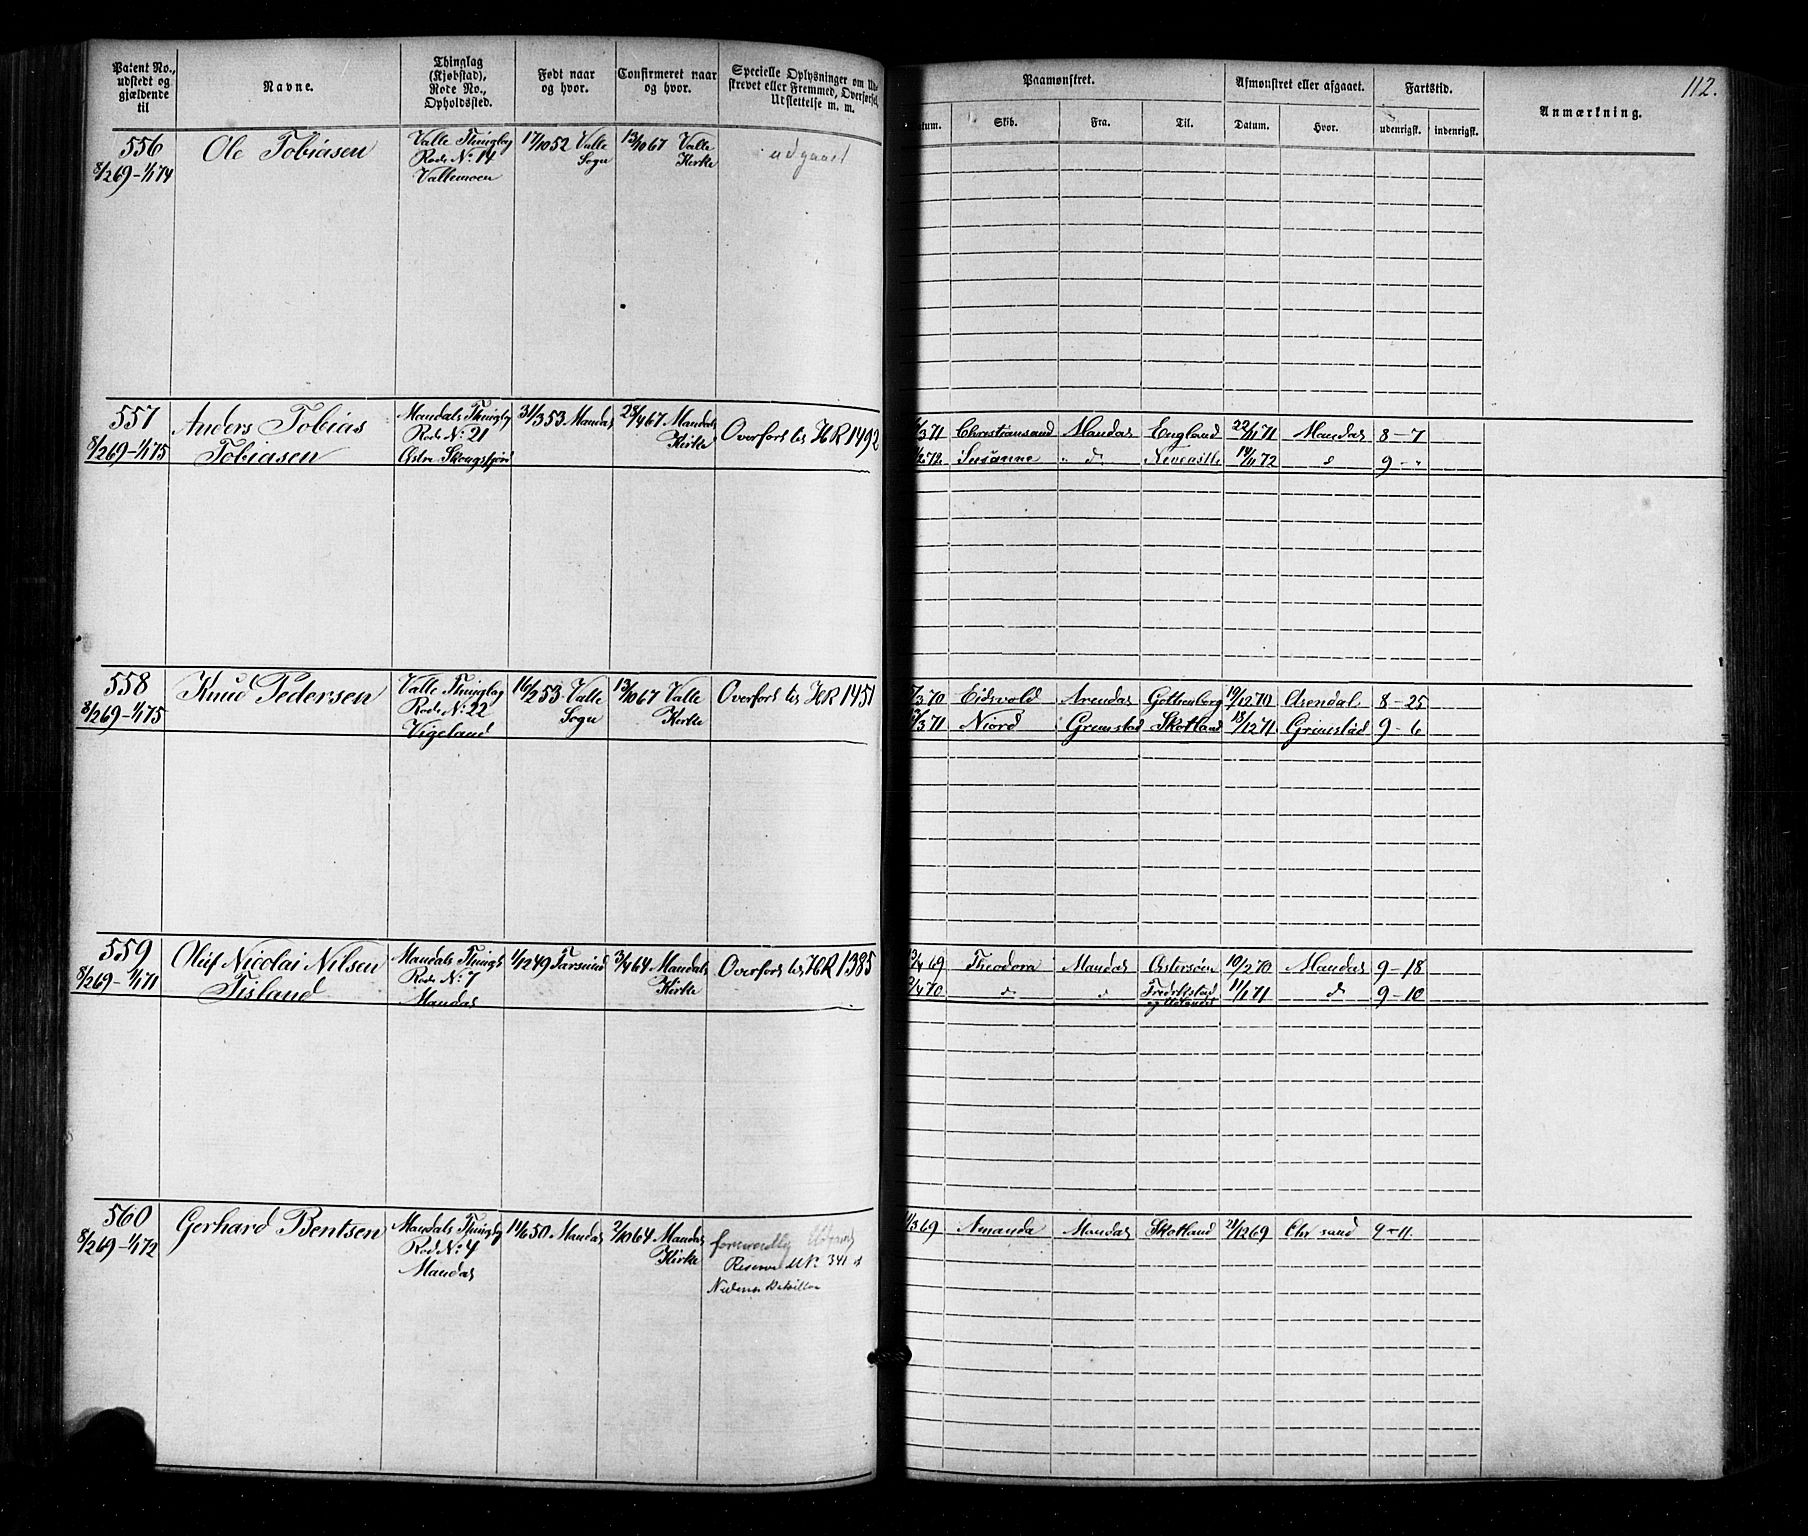 Patent No., udstedt og gjældende til
Navne.
Thinglag (Kjøbstad), Rode No., Opholdssted.
Født naar og hvor.
Confirmeret naar og hvor.
Specielle Oplysninger om Ud-
skrevet eller Fremmed, Overførsel,
Udslettelse m. m.
Paamønstret.
Afmønstret eller afgaaet.
Fartstid.
Anmærkning.
112.
Datum. Skib. Fra. Til. Datum. Hvor. udenrigsk. indenrigsk.
556 Ole Tobiasen Valle Thinglag 17/10 52 Valle 13/10 67 Valle udgaaet
8/2 69 – 1/1 74 Rode No. 14 Sogn Kirke
Vallemoen
557 Anders Tobias Mandals Thinglag 31/3 53 Mandal 28/4 67 Mandals Overført til HR 1492
8/2 69 – 1/1 75 Tobiasen Rode No. 21 Kirke
Østre Skougsfjord
/3 71 Christiansand Mandal England 22/11 71 Mandal 8 – 7
/2 72 Susanne " d Newcastle 14/11 72 d 9 – "
558 Knud Pedersen Valle Thinglag 16/2 53 Valle 13/10 67 Valle Overført til HR 1451
8/2 69 – 1/1 75 Rode No. 22 Sogn Kirke
Vigeland
/3 70 Eidsvold Arendal Gottenborg 19/12 70 Arendal 8 – 25
/3 71 Niord Grimstad Skotland 18/12 71 Grimstad 9 – 6
559 Oluf Nicolai Nilsen Mandals Thingl. 1/12 49 Farsund 3/4 64 Mandals Overført til HR 1385
8/2 69 – 1/1 71 Tisland Rode No. 7 Kirke
Mandal
/4 69 Theodora Mandal Østersøen 10/2 70 Mandal 9 – 18
/4 70 d d Fredrikstad 11/1 71 d 9 – 10
560 Gerhard Bentsen Mandals Thinglag 11/6 50 Mandal 2/10 64 Mandal
8/2 69 – 1/1 72 Rode No. 4 Kirke Reserve No. 341
Mandal
/3 69 Amanda Mandal Skotland 21/12 69 Chrsand 9 – 11.